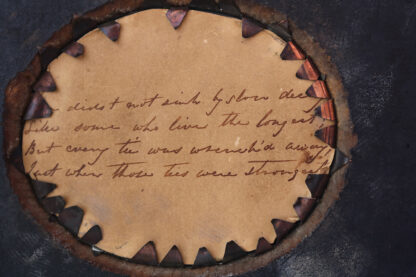 didst not sink by slow decay
Like some who live the longest,
But every tie was wrench'd away
Just when those ties were strongest